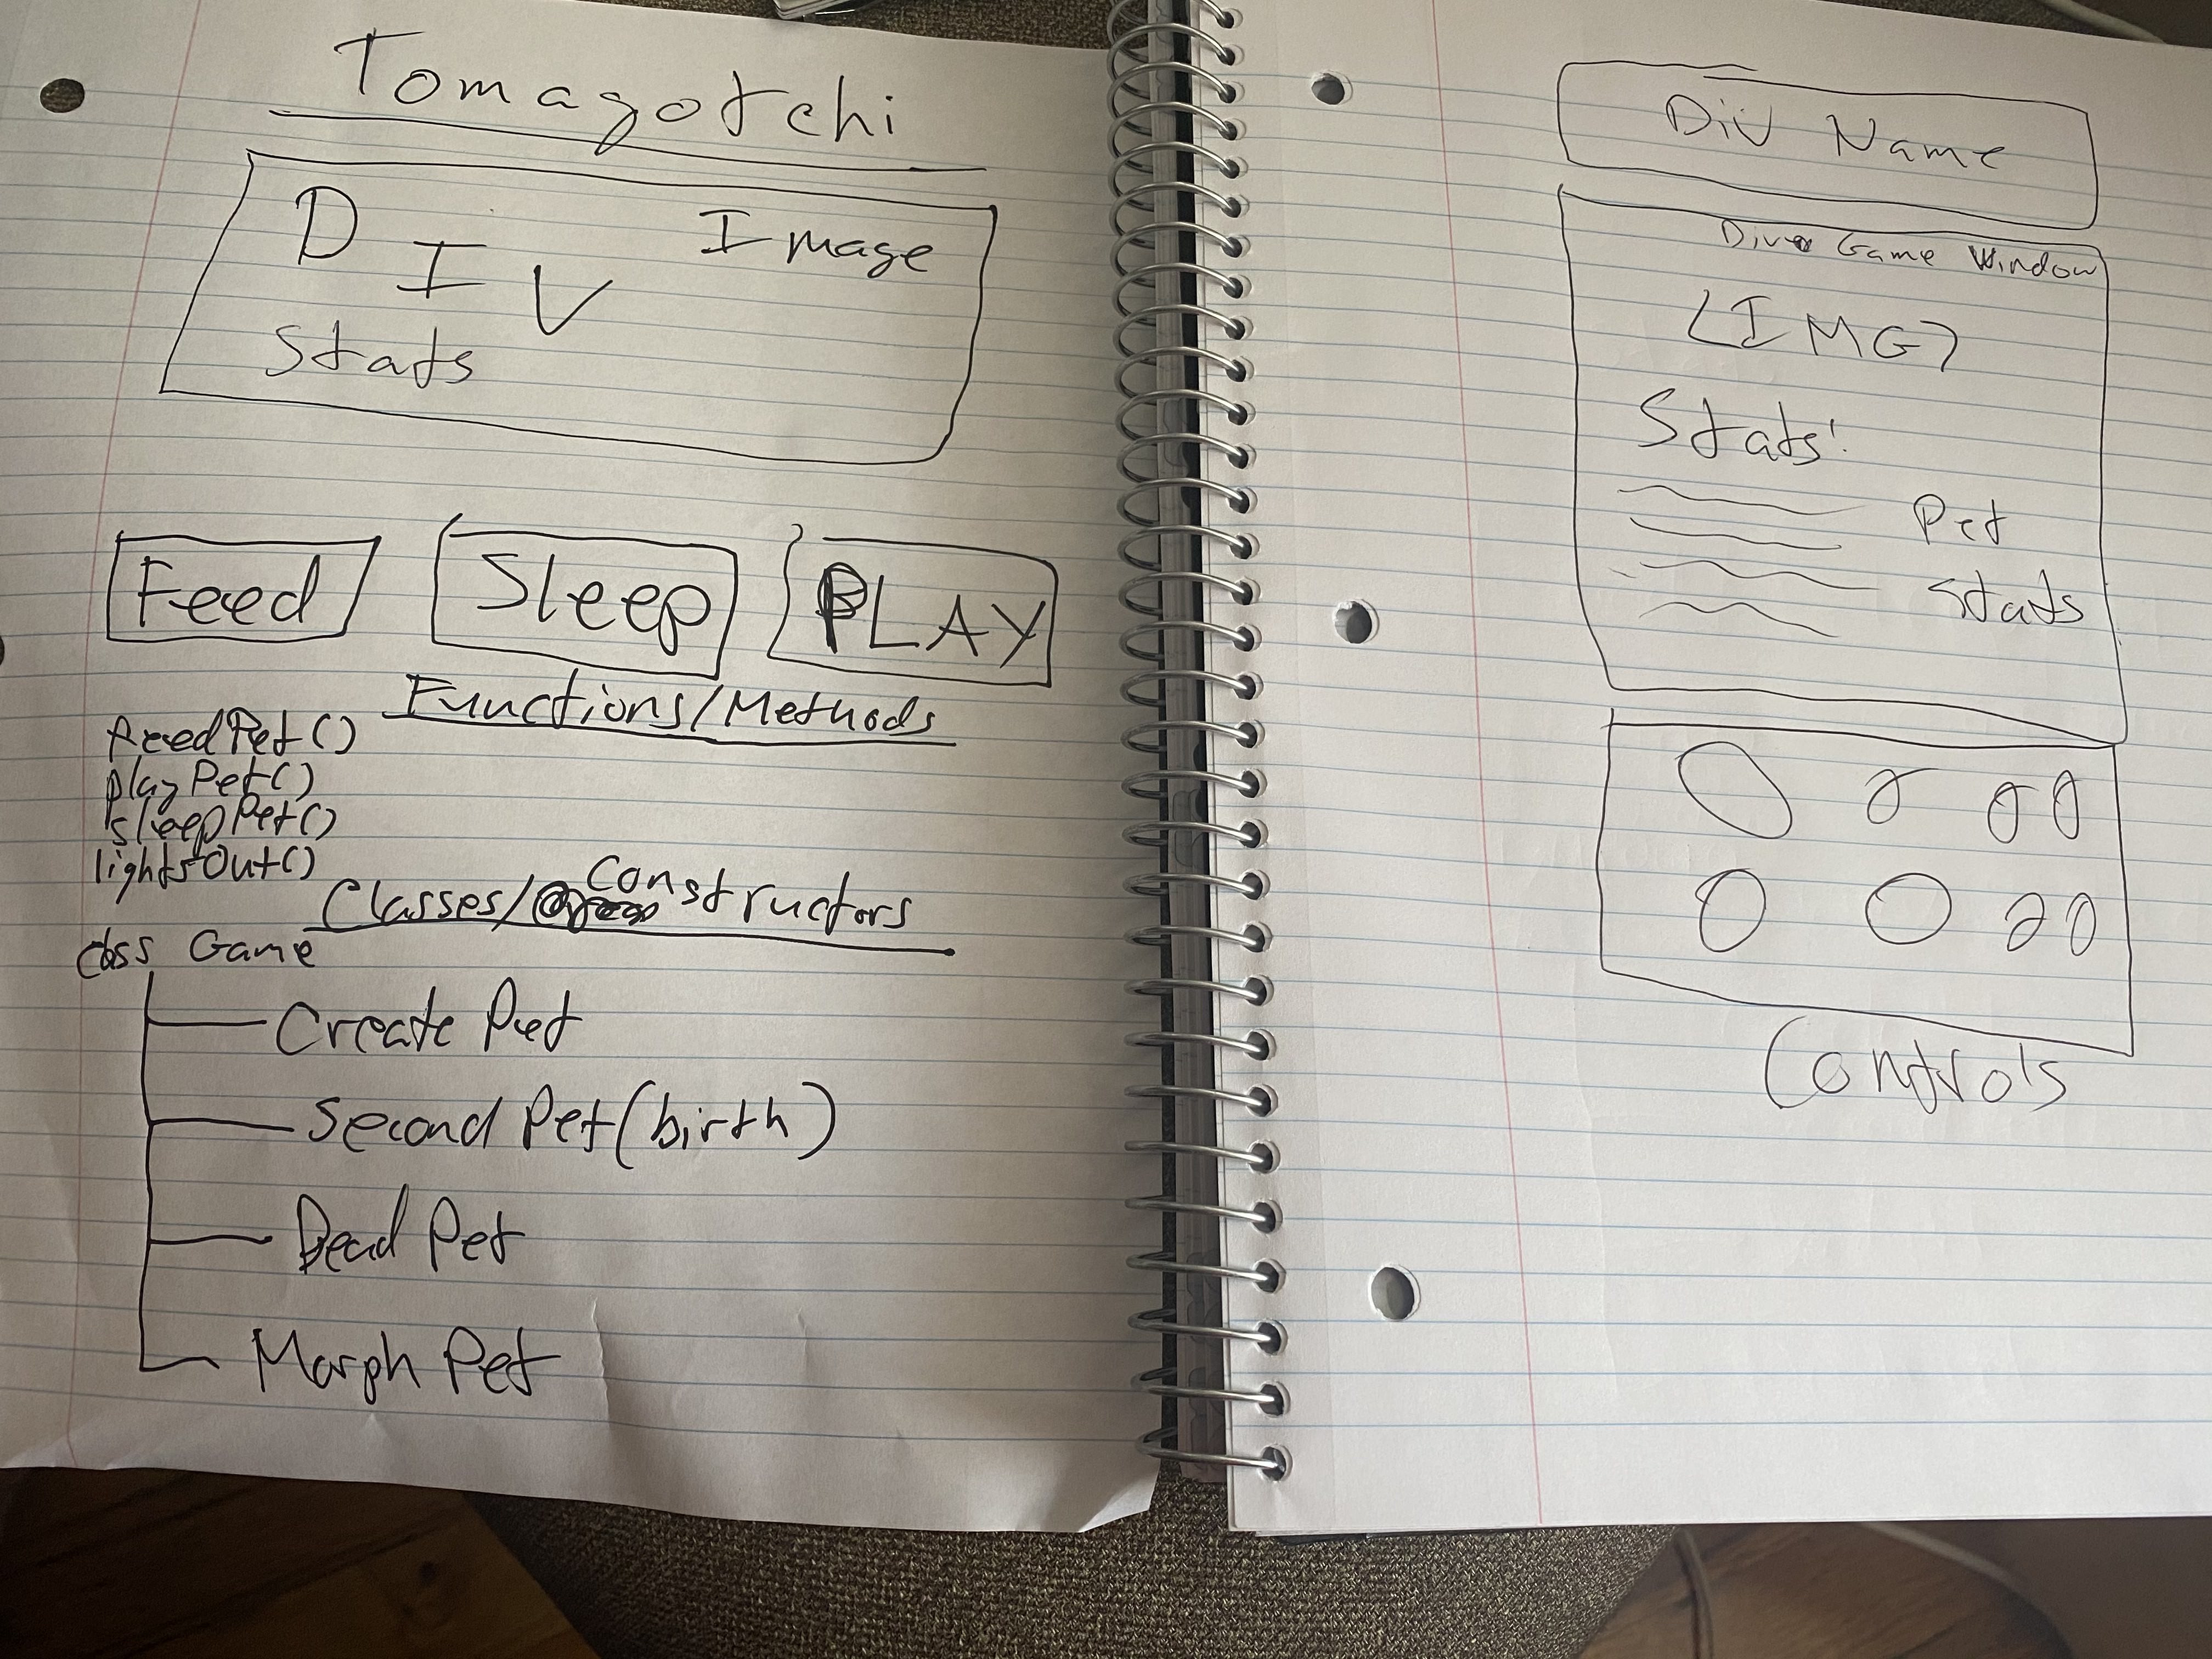 Tomagotchi
DIV Image
Stats
Feed Sleep PLAY
Functions/Methods
feedPet()
playPet()
sleepPet()
lightsOut()
Classes/Constructors
class Game
Create Pet
Second Pet (birth)
Dead Pet
Morph Pet
Div Name
Div Game Window
(IMG)
Stats:
Pet
stats
Controls